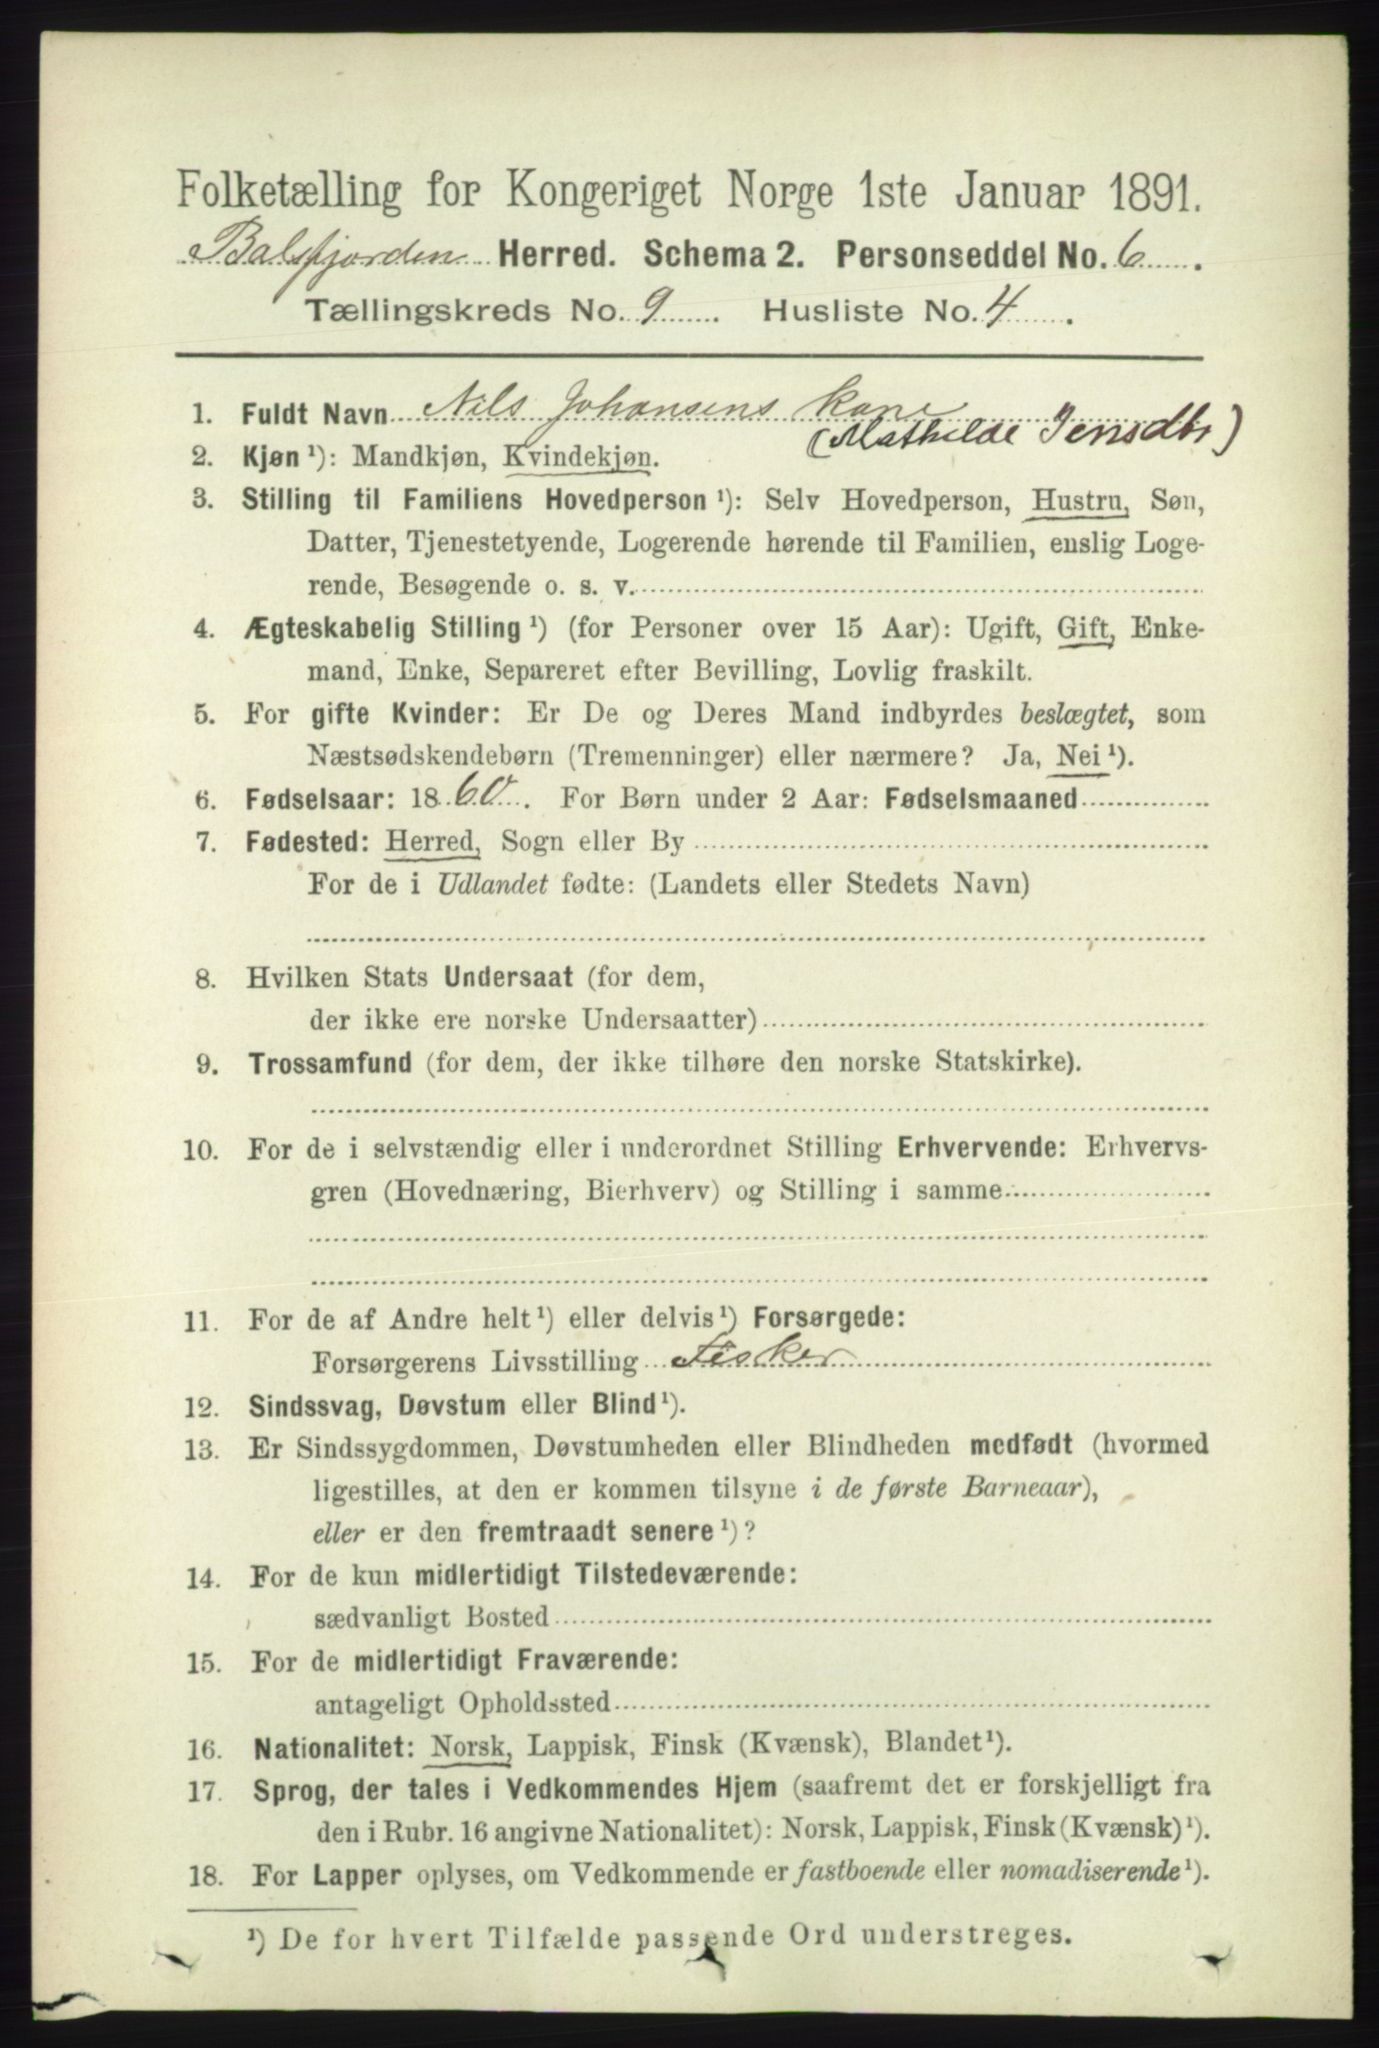 Folketælling for Kongeriget Norge 1ste Januar 1891.
Balsfjorden Herred. Schema 2. Personseddel No. 6.
Tællingskreds No. 9. Husliste No. 4.
1. Fuldt Navn Nils Johansens kone
(Mathilde Jensdtr)
2. Kjøn¹): Mandkjøn, Kvindekjøn.
3. Stilling til Familiens Hovedperson¹): Selv Hovedperson, Hustru, Søn,
Datter, Tjenestetyende, Logerende hørende til Familien, enslig Loge-
rende, Besøgende o. s. v.
4. Ægteskabelig Stilling¹) (for Personer over 15 Aar): Ugift, Gift, Enke-
mand, Enke, Separeret efter Bevilling, Lovlig fraskilt.
5. For gifte Kvinder: Er De og Deres Mand indbyrdes beslægtet, som
Næstsødskendebørn (Tremenninger) eller nærmere? Ja, Nei¹).
6. Fødselsaar: 1860. For Børn under 2 Aar: Fødselsmaaned
7. Fødested: Herred, Sogn eller By
For de i Udlandet fødte: (Landets eller Stedets Navn)
8. Hvilken Stats Undersaat (for dem,
der ikke ere norske Undersaatter)
9. Trossamfund (for dem, der ikke tilhøre den norske Statskirke).
10. For de i selvstændig eller i underordnet Stilling Erhvervende: Erhvervs-
gren (Hovednæring, Bierhverv) og Stilling i samme
11. For de af Andre helt¹) eller delvis¹) Forsørgede:
Forsørgerens Livsstilling Fisker
12. Sindssvag, Døvstum eller Blind¹).
13. Er Sindssygdommen, Døvstumheden eller Blindheden medfødt (hvormed
ligestilles, at den er kommen tilsyne i de første Barneaar),
eller er den fremtraadt senere¹)?
14. For de kun midlertidigt Tilstedeværende:
sædvanligt Bosted
15. For de midlertidigt Fraværende:
antageligt Opholdssted
16. Nationalitet: Norsk, Lappisk, Finsk (Kvænsk), Blandet¹).
17. Sprog, der tales i Vedkommendes Hjem (saafremt det er forskjelligt fra
den i Rubr. 16 angivne Nationalitet): Norsk, Lappisk, Finsk (Kvænsk)¹).
18. For Lapper oplyses, om Vedkommende er fastboende eller nomadiserende¹).
¹) De for hvert Tilfælde passende Ord understreges.